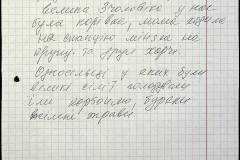 велика 5 чоловік у нас
була корівка, мама ходила
на станцію міняла на
крупу та другі харчі.
Односельці у яких були
великі сім'ї голодували
їли картоплю, буряки
весняні трави.